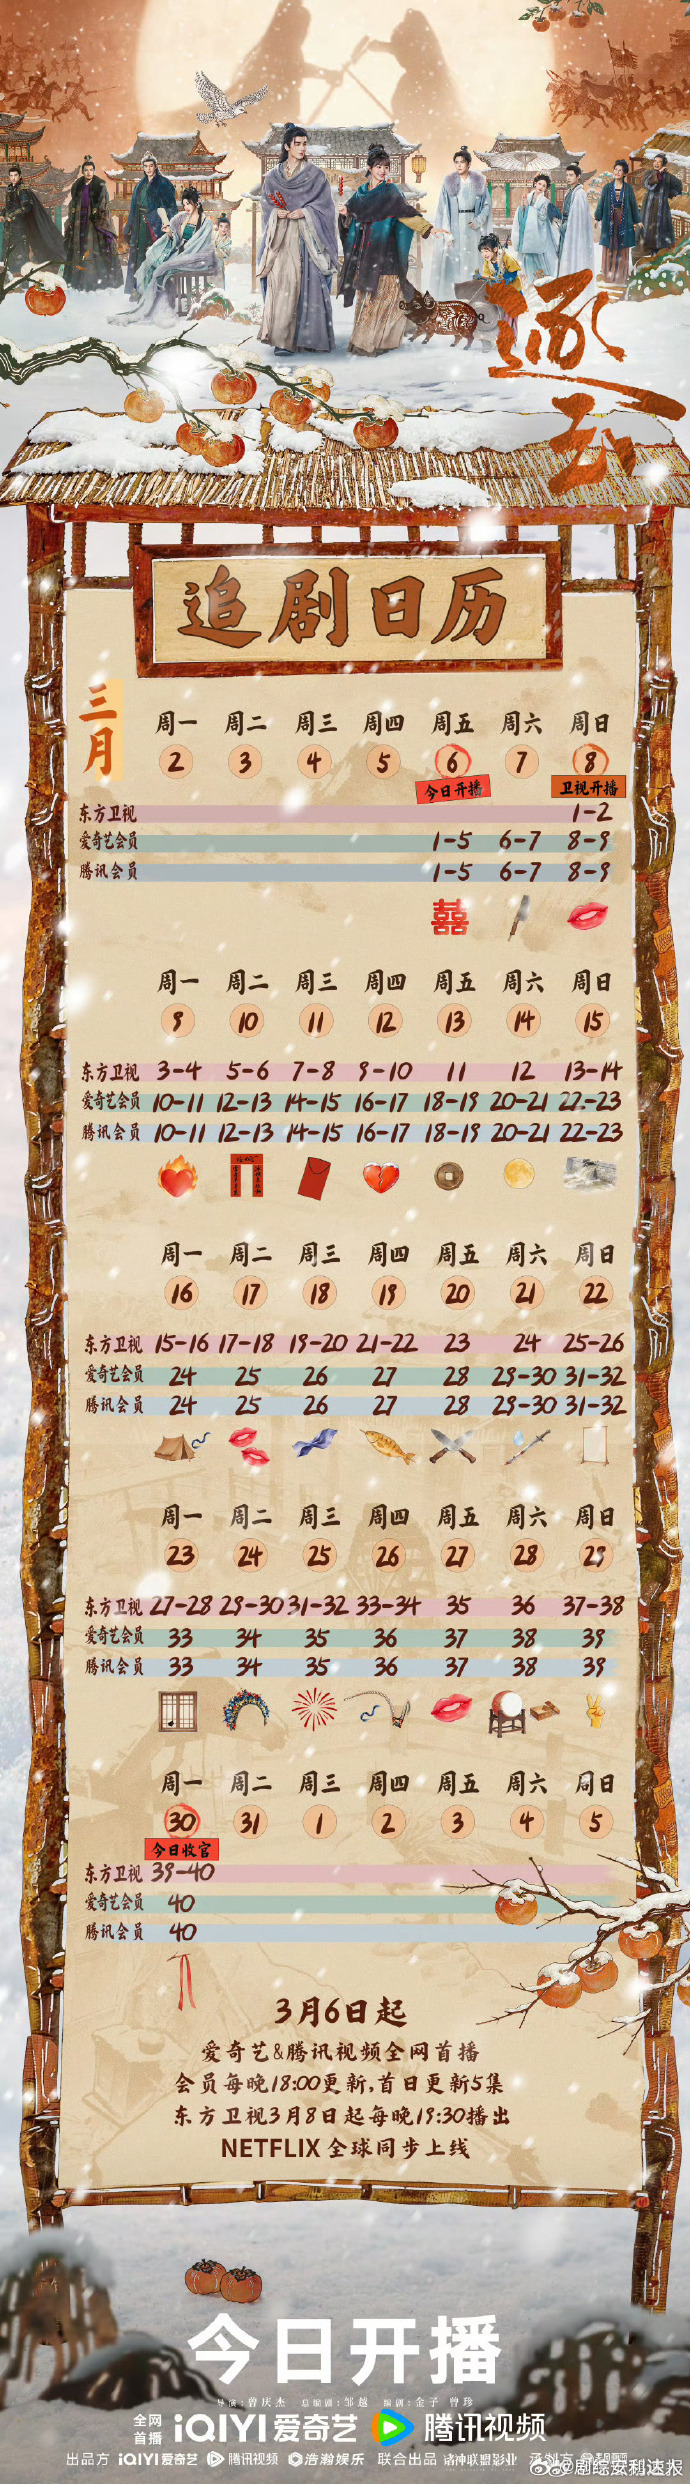 逐玉
追剧日历
三月
周一 周二 周三 周四 周五 周六 周日
2 3 4 5 6 7 8
今日开播 卫视开播
东方卫视 1-2
爱奇艺会员 1-5 6-7 8-9
腾讯会员 1-5 6-7 8-9
囍
周一 周二 周三 周四 周五 周六 周日
9 10 11 12 13 14 15
东方卫视 3-4 5-6 7-8 9-10 11 12 13-14
爱奇艺会员 10-11 12-13 14-15 16-17 18-19 20-21 22-23
腾讯会员 10-11 12-13 14-15 16-17 18-19 20-21 22-23
周一 周二 周三 周四 周五 周六 周日
16 17 18 19 20 21 22
东方卫视 15-16 17-18 19-20 21-22 23 24 25-26
爱奇艺会员 24 25 26 27 28 29-30 31-32
腾讯会员 24 25 26 27 28 29-30 31-32
周一 周二 周三 周四 周五 周六 周日
23 24 25 26 27 28 29
东方卫视 27-28 29-30 31-32 33-34 35 36 37-38
爱奇艺会员 33 34 35 36 37 38 39
腾讯会员 33 34 35 36 37 38 39
周一 周二 周三 周四 周五 周六 周日
30 31 1 2 3 4 5
今日收官
东方卫视 39-40
爱奇艺会员 40
腾讯会员 40
3月6日起
爱奇艺&腾讯视频全网首播
会员每晚18:00更新,首日更新5集
东方卫视3月8日起每晚19:30播出
NETFLIX 全球同步上线
今日开播
导演:曾庆杰 总编剧:邹越 编剧:金子 曾珍
全网首播 iQIYI爱奇艺 腾讯视频
出品方 iQIYI爱奇艺 腾讯视频 浩瀚娱乐 联合出品 诸神联盟影业 承制方
@剧综安利速报